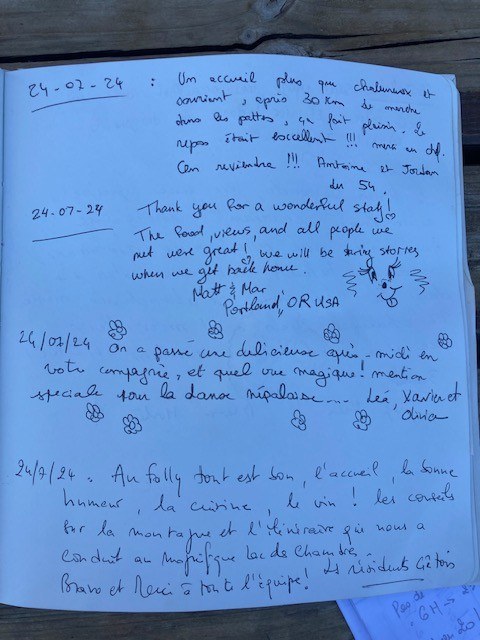 24-07-24 : Un accueil plus que chaleureux et
souriant, après 30 Km de marche
dans les pattes, ça fait plaisir. Le
repas était excellent !!! merci au chef.
On reviendra !!! Antoine et Jordan
du 54.
24-07-24 Thank you for a wonderful stay!
The food, views, and all people we
met were great! we will be sharing stories
when we get back home.
Matt & Mar
Portland, OR USA
24/07/24 On a passé une délicieuse après-midi en
votre compagnie, et quel vue magique! mention
speciale pour la danse népalaise.... Léa, Xavier et
Olivier
24/7/24 . Au Folly tout est bon, l'accueil, la bonne
humeur, la cuisine, le vin ! les conseils
sur la montagne et l'itinéraire qui nous a
conduit au magnifique Lac de Chambres.
Bravo et Merci à toute l'équipe! Les résidents Gêtois